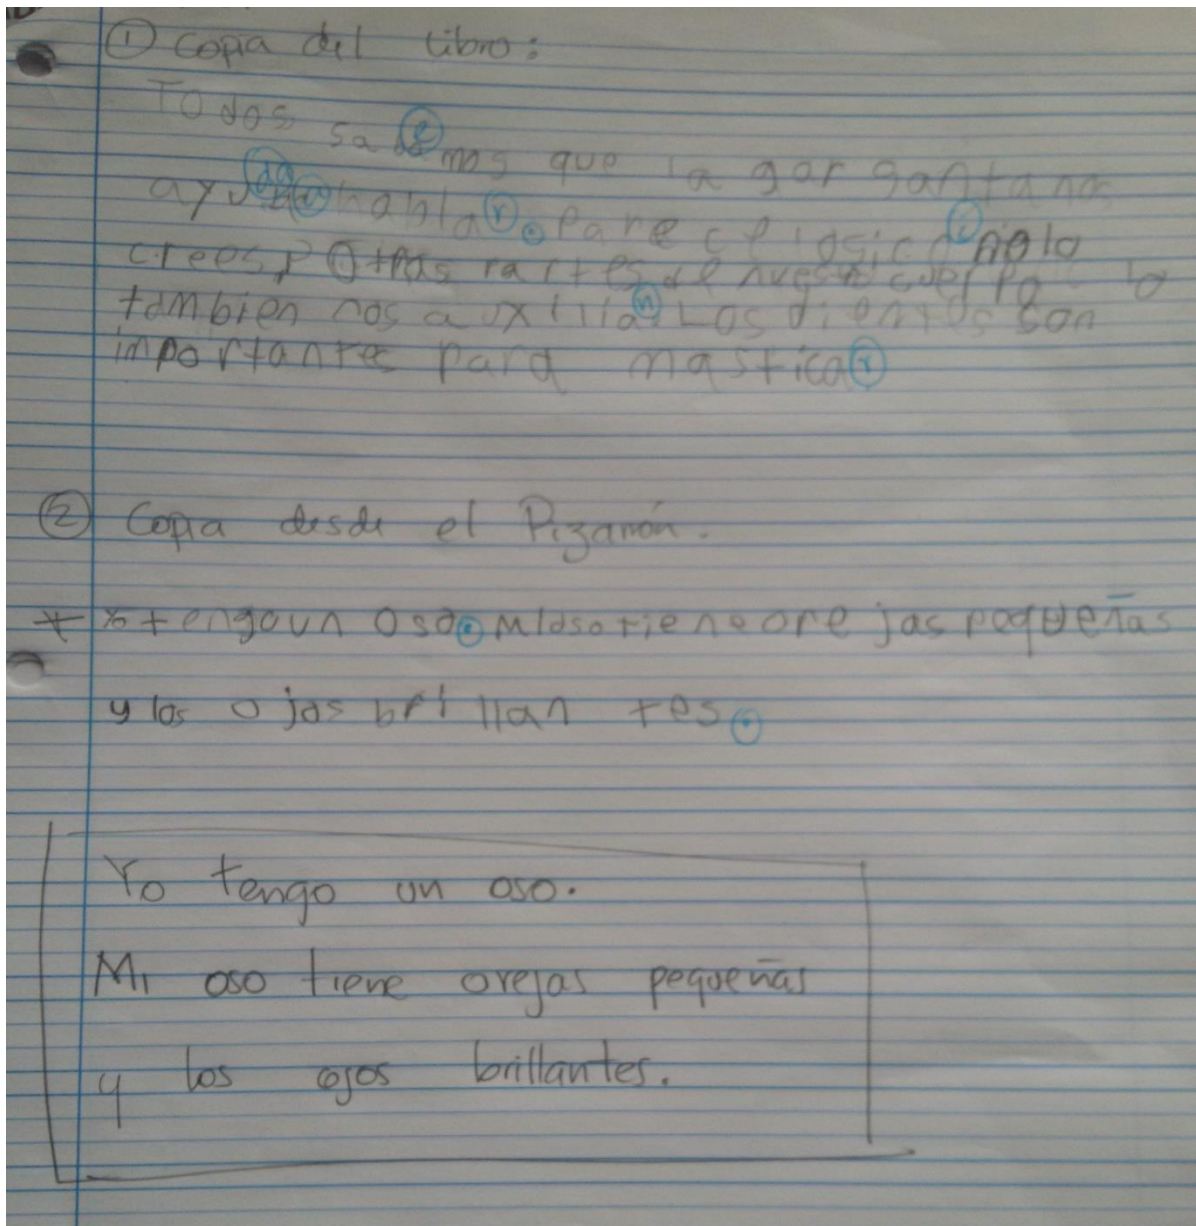 ① Copia del libro:
Todos sabemos que la garganta nos
ayuda a hablar. Parece lógico ¿no lo
crees? Otras partes de nuestro cuerpo lo
tambien nos auxilian Los dientes son
importantes para masticar
② Copia desde el Pizarrón.
* Yo tengoun Oso. MIosotieneore jas pequeñas
y los o jos bri llan tes.
Yo tengo un oso.
Mi oso tiene orejas pequeñas
y los ojos brillantes.